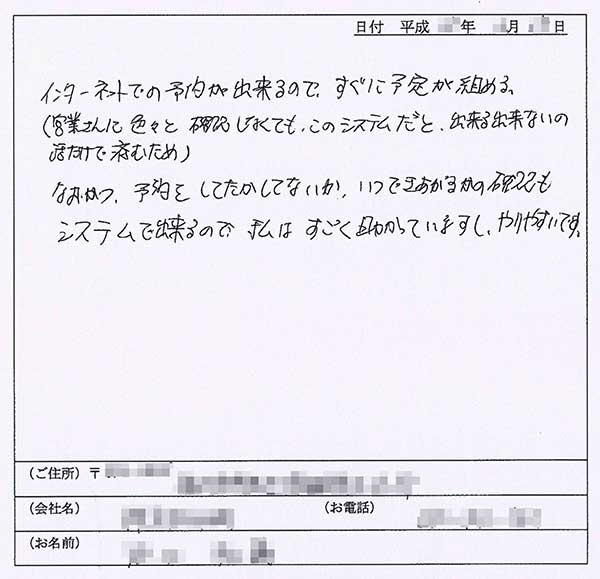 日付 平成 年 月 日
インターネットでの予約が出来るので、すぐに予定が組める。
(営業さんに色々と確認しなくても、このシステムだと、出来る出来ないの
話だけで済むため)
なおかつ、予約をしてたかしてないか、いつできあがるかの確認も
システムで出来るので、私はすごく助かっていますし、やりやすいです。
(ご住所) 〒
(会社名) (お電話)
(お名前)